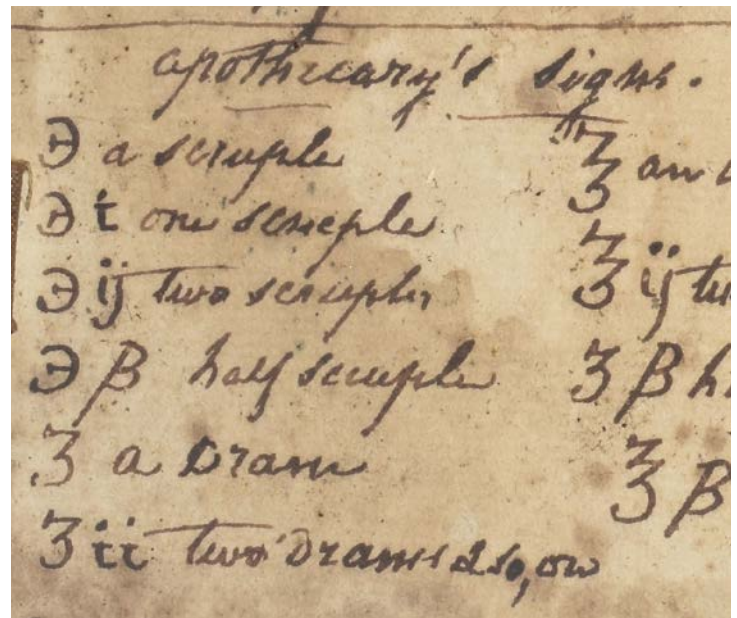 apothecary's signs.
℈ a scruple
℈ i one scruple
℈ ij two scruples
℈ β half scruple
ʒ a Dram
ʒ ii two Drams & so, on
℥ an
℥ ij
ʒ β
℥ β